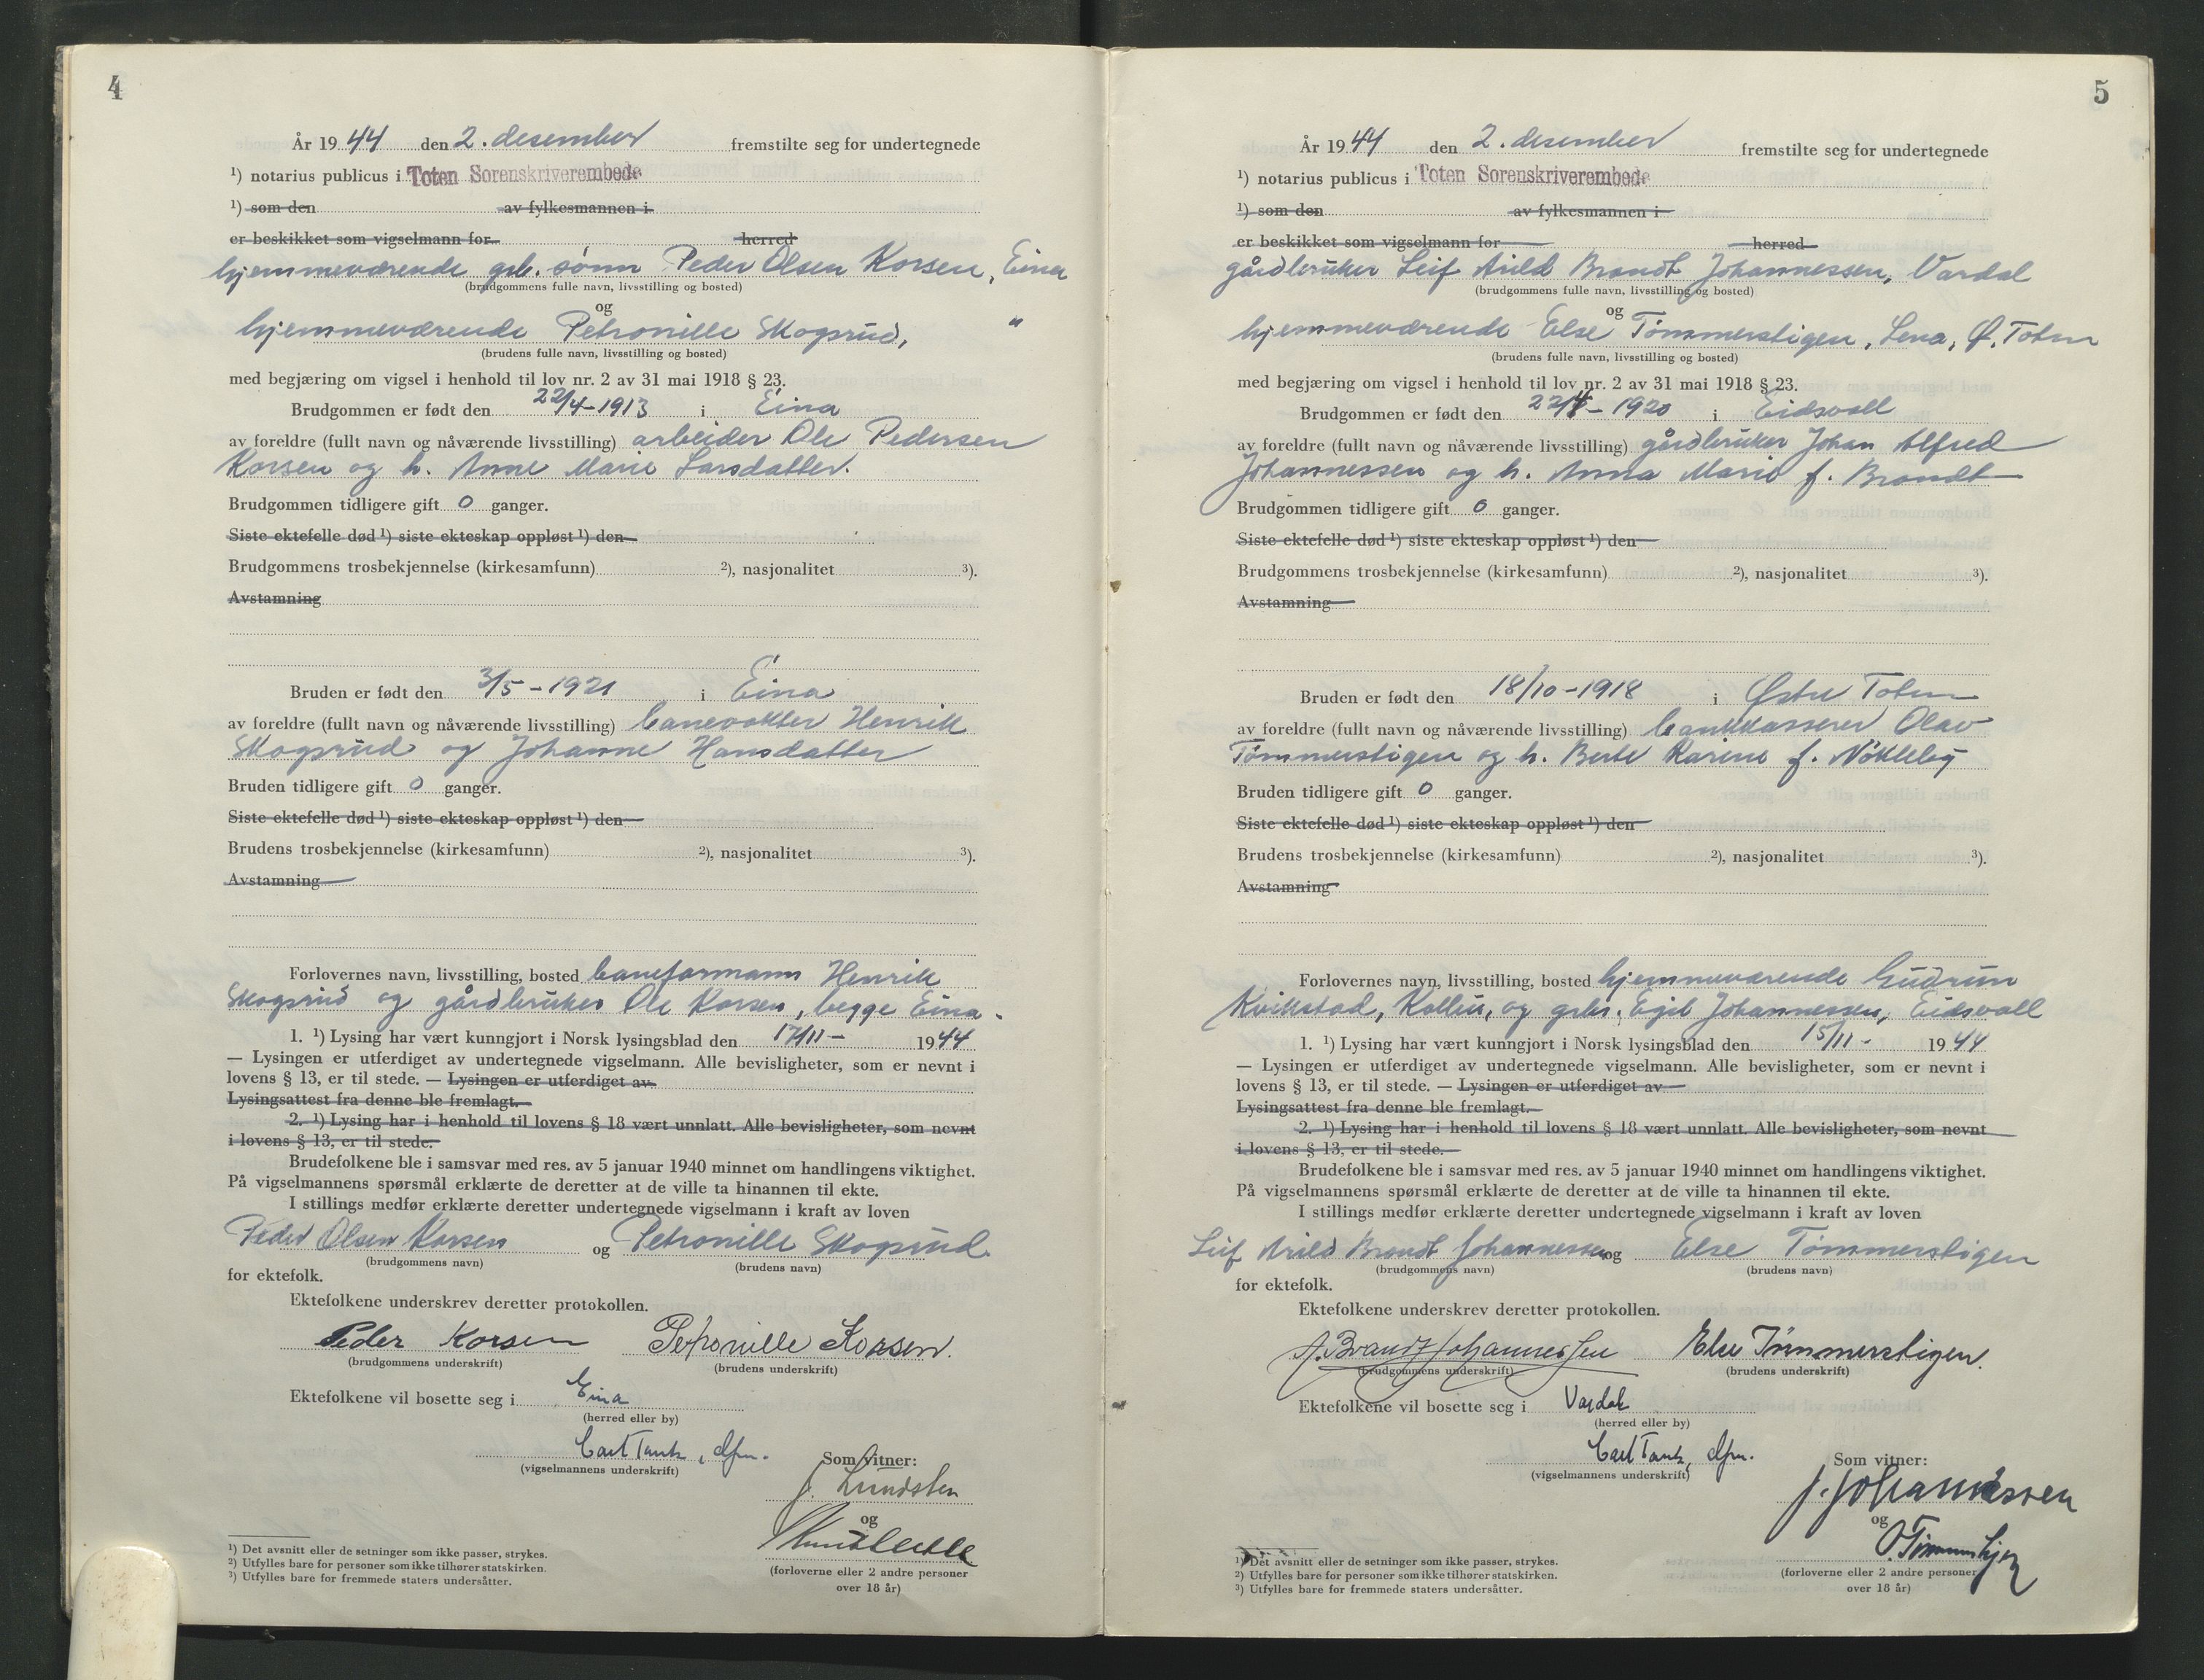 4
År 1944 den 2. desember fremstilte seg for undertegnede
¹) notarius publicus i Toten Sorenskriverembede
¹) som den av fylkesmannen i
er beskikket som vigselmann for herred
hjemmeværende grb. sønn Peder Olsen Korsen, Eina
(brudgommens fulle navn, livsstilling og bosted)
og
hjemmeværende Petronille Skogsrud, "
(brudens fulle navn, livsstilling og bosted)
med begjæring om vigsel i henhold til lov nr. 2 av 31 mai 1918 § 23.
Brudgommen er født den 22/4-1913 i Eina
av foreldre (fullt navn og nåværende livsstilling) arbeider Ole Pedersen
Korsen og h. Anne Marie Larsdatter.
Brudgommen tidligere gift 0 ganger.
Siste ektefelle død ¹) siste ekteskap oppløst ¹) den
Brudgommens trosbekjennelse (kirkesamfunn) ²), nasjonalitet ³).
Avstamning
Bruden er født den 3/5-1921 i Eina
av foreldre (fullt navn og nåværende livsstilling) banevokter Henrik
Skogsrud og Johanne Hansdatter
Bruden tidligere gift 0 ganger.
Siste ektefelle død ¹) siste ekteskap oppløst ¹) den
Brudens trosbekjennelse (kirkesamfunn) ²), nasjonalitet ³).
Avstamning
Forlovernes navn, livsstilling, bosted baneformann Henrik
Skogsrud og gårdbruker Ole Korsen, begge Eina.
1. ¹) Lysing har vært kunngjort i Norsk lysingsblad den 17/11- 1944
— Lysingen er utferdiget av undertegnede vigselmann. Alle bevisligheter, som er nevnt i
lovens § 13, er til stede. — Lysingen er utferdiget av
Lysingsattest fra denne ble fremlagt.
2. ¹) Lysing har i henhold til lovens § 18 vært unnlatt. Alle bevisligheter, som nevnt
i lovens § 13, er til stede.
Brudefolkene ble i samsvar med res. av 5 januar 1940 minnet om handlingens viktighet.
På vigselmannens spørsmål erklærte de deretter at de ville ta hinannen til ekte.
I stillings medfør erklærte deretter undertegnede vigselmann i kraft av loven
Peder Olsen Korsen og Petronille Skogsrud
(brudgommens navn) (brudens navn)
for ektefolk.
Ektefolkene underskrev deretter protokollen.
Peder Korsen Petronille Korsen.
(brudgommens underskrift) (brudens underskrift)
Ektefolkene vil bosette seg i Eina
(herred eller by)
Carl Tank, dfm.
(vigselmannens underskrift) Som vitner:
J. Lundsten
og
(forloverne eller 2 andre personer
over 18 år)
¹) Det avsnitt eller de setninger som ikke passer, strykes.
²) Utfylles bare for personer som ikke tilhører statskirken.
³) Utfylles bare for fremmede staters undersåtter.
5
År 1944 den 2. desember fremstilte seg for undertegnede
¹) notarius publicus i Toten Sorenskriverembede
¹) som den av fylkesmannen i
er beskikket som vigselmann for herred
gårdbruker Leif Arild Brandt Johannessen, Vardal
(brudgommens fulle navn, livsstilling og bosted)
og
hjemmeværende Else Tømmerstigen, Lena, Ø. Toten
(brudens fulle navn, livsstilling og bosted)
med begjæring om vigsel i henhold til lov nr. 2 av 31 mai 1918 § 23.
Brudgommen er født den 22/4-1920 i Eidsvoll
av foreldre (fullt navn og nåværende livsstilling) gårdbruker Johan Alfred
Johannessen og h. Anna Marie f. Brandt
Brudgommen tidligere gift 0 ganger.
Siste ektefelle død ¹) siste ekteskap oppløst ¹) den
Brudgommens trosbekjennelse (kirkesamfunn) ²), nasjonalitet ³).
Avstamning
Bruden er født den 18/10-1918 i Østre Toten
av foreldre (fullt navn og nåværende livsstilling) bankkasserer Olav
Tømmerstigen og h. Berte Karine f. Nøkleby
Bruden tidligere gift 0 ganger.
Siste ektefelle død ¹) siste ekteskap oppløst ¹) den
Brudens trosbekjennelse (kirkesamfunn) ²), nasjonalitet ³).
Avstamning
Forlovernes navn, livsstilling, bosted hjemmeværende Gudrun
Kvikstad, Kolbu, og grbr. Egil Johannessen, Eidsvoll
1. ¹) Lysing har vært kunngjort i Norsk lysingsblad den 15/11- 1944
— Lysingen er utferdiget av undertegnede vigselmann. Alle bevisligheter, som er nevnt i
lovens § 13, er til stede. — Lysingen er utferdiget av
Lysingsattest fra denne ble fremlagt.
2. ¹) Lysing har i henhold til lovens § 18 vært unnlatt. Alle bevisligheter, som nevnt
i lovens § 13, er til stede.
Brudefolkene ble i samsvar med res. av 5 januar 1940 minnet om handlingens viktighet.
På vigselmannens spørsmål erklærte de deretter at de ville ta hinannen til ekte.
I stillings medfør erklærte deretter undertegnede vigselmann i kraft av loven
Leif Arild Brandt Johannessen og Else Tømmerstigen
(brudgommens navn) (brudens navn)
for ektefolk.
Ektefolkene underskrev deretter protokollen.
A. Brandt Johannessen Else Tømmerstigen.
(brudgommens underskrift) (brudens underskrift)
Ektefolkene vil bosette seg i Vardal
(herred eller by)
Carl Tank, dfm.
(vigselmannens underskrift) Som vitner:
J. Johannessen
og
(forloverne eller 2 andre personer
over 18 år)
¹) Det avsnitt eller de setninger som ikke passer, strykes.
²) Utfylles bare for personer som ikke tilhører statskirken.
³) Utfylles bare for fremmede staters undersåtter.